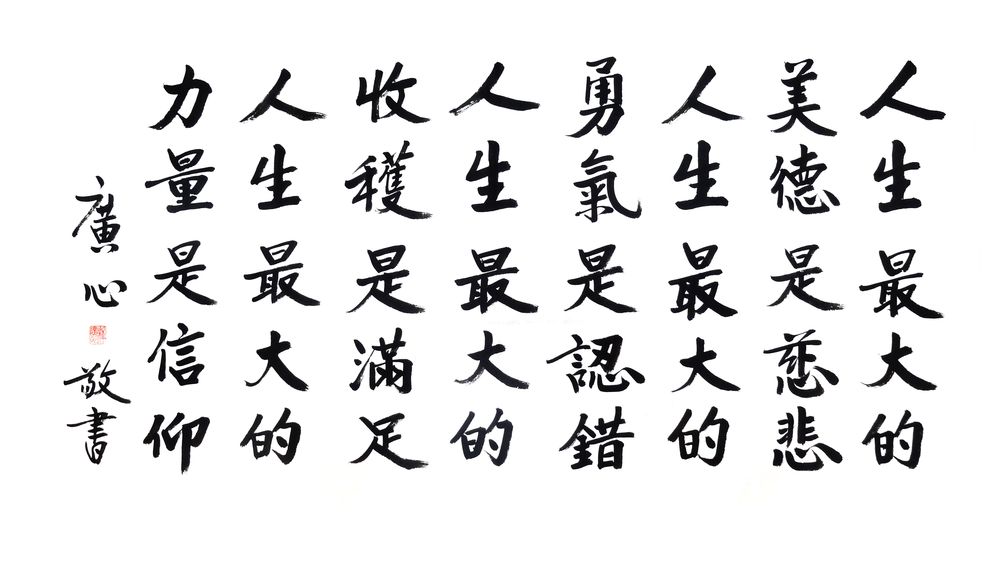 人生最大的
美德是慈悲
人生最大的
勇氣是認錯
人生最大的
收穫是滿足
人生最大的
力量是信仰
廣心 敬書